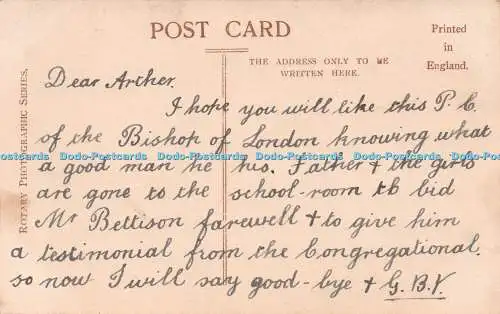 POST CARD
Printed
in
England.
THE ADDRESS ONLY TO BE
WRITTEN HERE.
ROTARY PHOTOGRAPHIC SERIES.
Dear Archer.
I hope you will like this P.C.
of the Bishop of London knowing what
a good man he his. Father & the girls
are gone to the school-room to bid
Mr Bettison farewell & to give him
a testimonial from the Congregational.
so now I will say good-bye & G.B.Y.
Dodo-Postcards Dodo-Postcards Dodo-Postcards Dodo-Postcards Dodo-Postcards